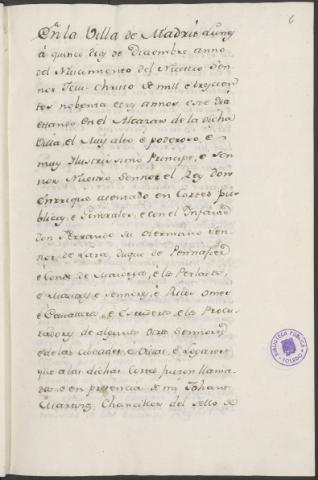 6
En la Villa de Madrid
á quince dias de Diciembre anno
del Nascimiento del Nuestro Sen-
nor Jesu-Christo de mil e trescien-
tos nobenta e tres annos este dia
estando en el Alcazar de la dicha
Villa, el Muy alto e poderoso, é
muy Ilustrissimo Principe, e Sen-
nor Nuestro Sennor el Rey Don
Enrrique asentado en Cortes pu-
blicas, e Generales, e con el Infante
Don Ferrando su Hermano Sen-
nor de Lara, Duque de Pennafiel
é Conde de Mayorga, é los Perlados,
é Maestres e Sennores, é Ricos Omes
e Cavalleros, é Escuderos, é los Procu-
radores de algunos Otros Sennores
é de las Cibdades e Villas, é Logares
que á las dichas Cortes fueron llama-
dos e en presencia de mi Johan
Martinez Chanciller del Sello de
BIBLIOTECA PUBLICA
TOLEDO